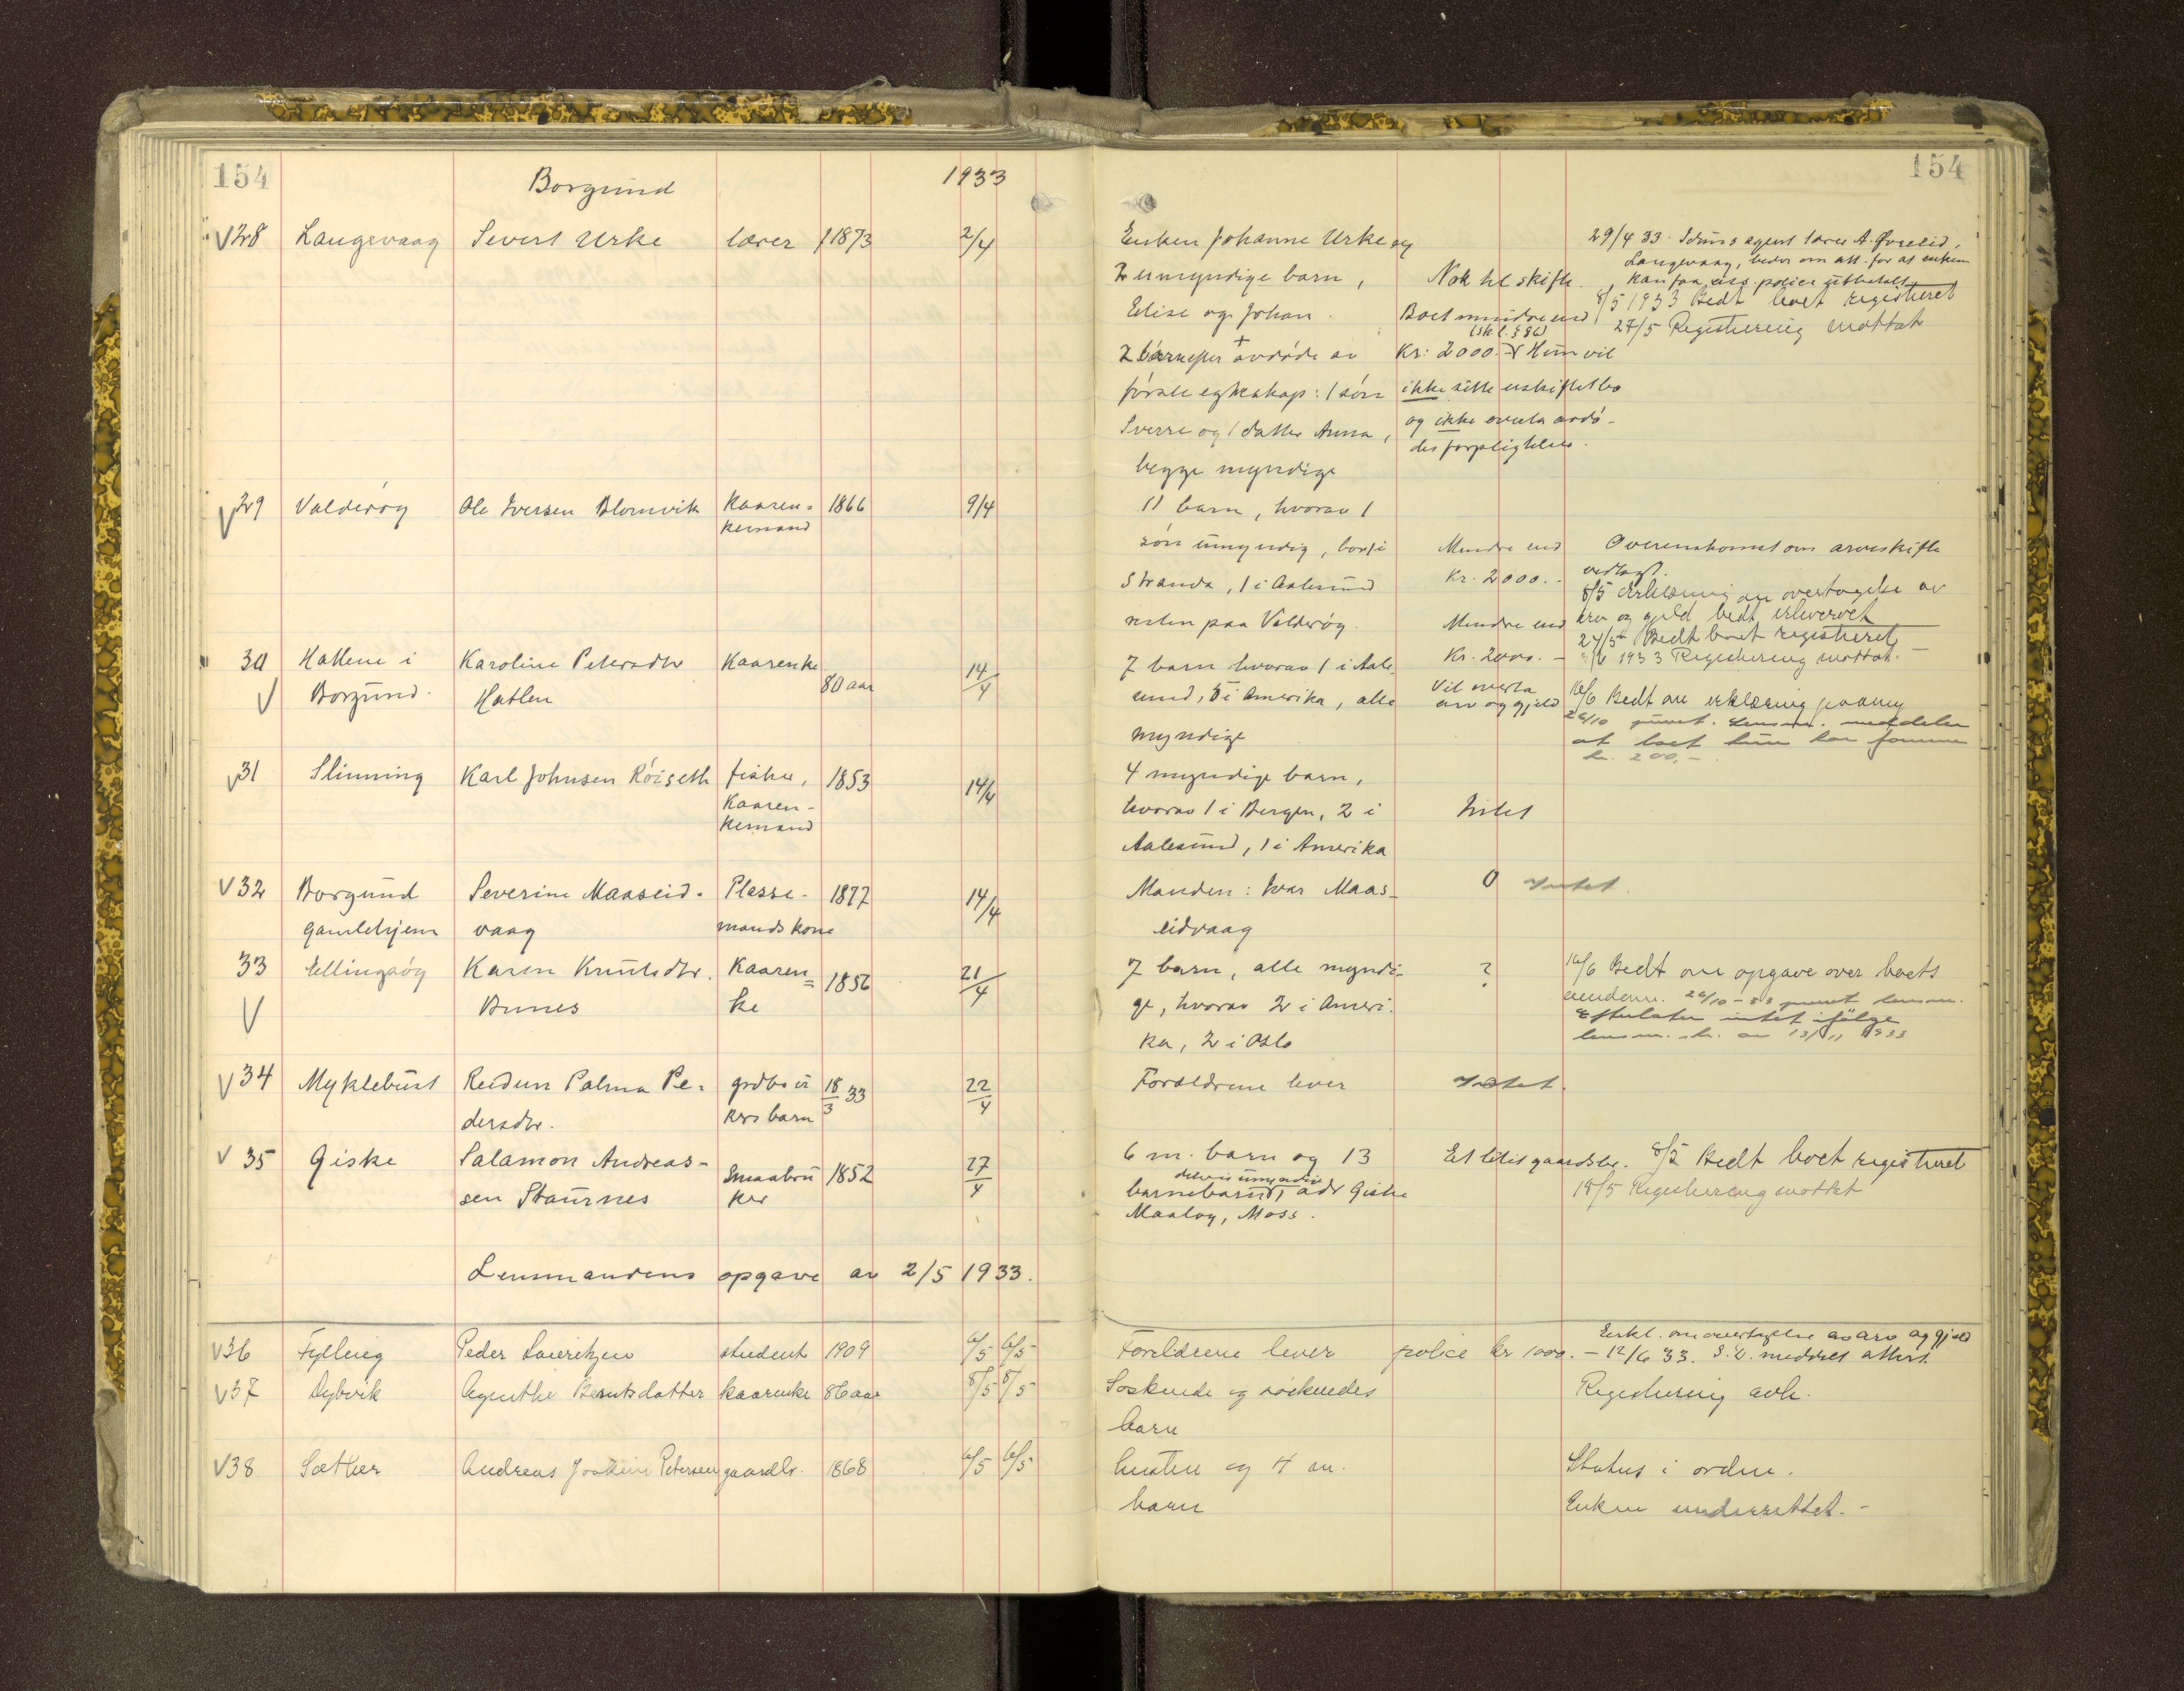 154 Borgund 1933 154
V 28 Langevaag Sivert Urke lærer f 1873 2/4 Enken Johanne Urke og 29/4 33. Iduns agent lærer A.
Langevaag, beder om att. for at enken
2 umyndige barn, Nok til skifte. kan faa liss. police utbetalt.
Elise og Johan. Boet mindre end 8/5 1933 Bedt boet registreret
(sk.l. § 86) 27/5 Registrering mottat
2 barn efter avdøde av Kr: 2000.- Hun vil
første egteskap: 1 søn ikke sitte uskiftet bo
Sverre og 1 datter Anna, og ikke overta avdø-
des forpligtelser.
begge myndige
V 29 Valderøy Ole Iversen Blomvik Kaaren= 1866 9/4 11 barn, hvorav 1
kemand
søn umyndig, bor i Mindre end Overenskomst om arveskifte
Stranda, 1 i Aalesund Kr. 2000.- vedlagt.
8/5 Erklæring om overtagelse av
resten paa Valderøy. Mindre end arv og gjeld bedt erhvervet
27/5 Bedt boet registreret
30 Hatlene i Karoline Petersdtr Kaarenke 80 aar 14/4 7 barn hvorav 1 i Aale- Kr. 2000.- 9/6 1933 Registrering mottat.-
V Borgund. Hatlen sund, 5 i Amerika, alle Vil overta arv og gjeld 16/6 Bedt om erklæring paany
myndige 26/10 purret. Lensm. meddeler
at boet kun har formue
kr. 200,-
V 31 Slinning Karl Johnsen Röiseth fisker, 1853 14/4 4 myndige barn,
Kaaren-
kemand
hvorav 1 i Bergen, 2 i Intet
Aalesund, 1 i Amerika
V 32 Borgund Severine Maaseid- Plasse- 1877 14/4 Manden: Ivar Maas- 0 Intet.
gamlehjem vaag mands kone eidvaag
33 Ellingsøy Karen Knutsdtr. Kaaren= 1856 21/4 7 barn, alle myndi- ? 16/6 Bedt om opgave over boets
V Bunes ke ge, hvorav 2 i Ameri- 26/10-33 purret lensm.
ka, 2 i Oslo Efterlater intet ifølge
lensm. skr. av 13/11 1933
V 34 Myklebust Reidun Palma Pe- grdbru- 18/3 33 22/4 Forældrene lever Intet.
dersdtr. kers barn
V 35 Giske Salamon Andreas- Smaabru 1852 27/4 6 m. barn og 13 Et litet gaardsbr. 8/5 Bedt boet registreret
sen Staurnes ker delvis umyndige
barnebarn, adr Giske 18/5 Registrering mottat
Maaløy, Moss.
Lensmandens opgave av 2/5 1933.
V 36 Fylling Peder Lauritzen student 1909 6/5 6/5 Foreldrene lever police kr 1000.- Erkl. om overtagelse av arv og gjeld
12/6 33. S.D. meddelt attest.
V 37 Dybvik Agnethe Berntsdatter kaarenke 86 aar 8/5 8/5 Søskende og søskendes Registrering avh.
barn
V 38 Sæther Andreas Joakim Petersen gaardbr. 1868 6/5 6/5 hustru og 4 m. Status i orden.
barn Enken underrettet.-